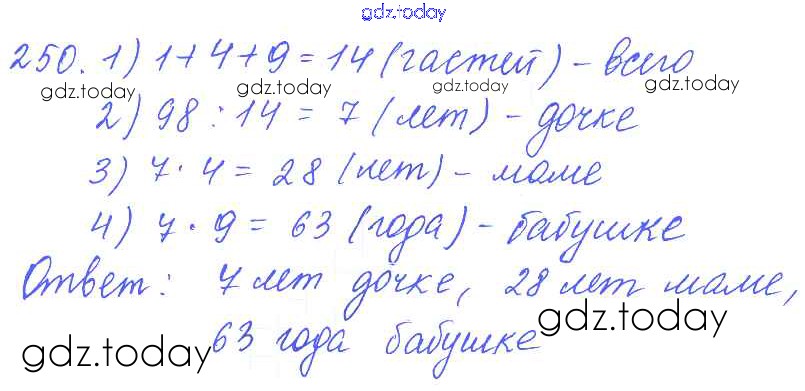 gdz.today
250. 1) 1+4+9=14 (частей) - всего
gdz.today gdz.today gdz.today
2) 98 : 14 = 7 (лет) - дочке
3) 7 · 4 = 28 (лет) - маме
4) 7 · 9 = 63 (года) - бабушке
Ответ: 7 лет дочке, 28 лет маме,
63 года бабушке
gdz.today gdz.today